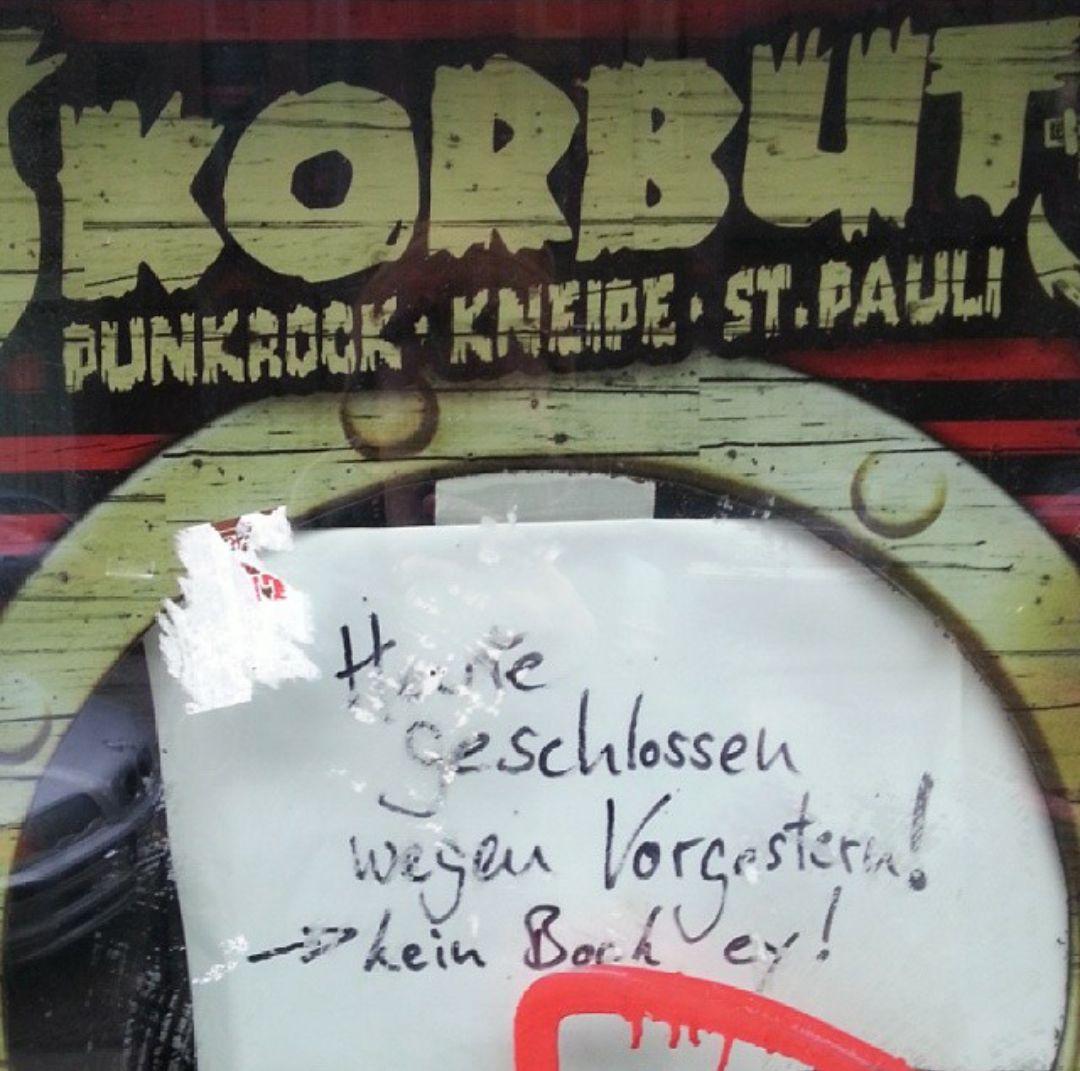 SKORBUT
PUNKROCK · KNEIPE · ST. PAULI
Heute
geschlossen
wegen Vorgestern!
→ kein Bock ey!